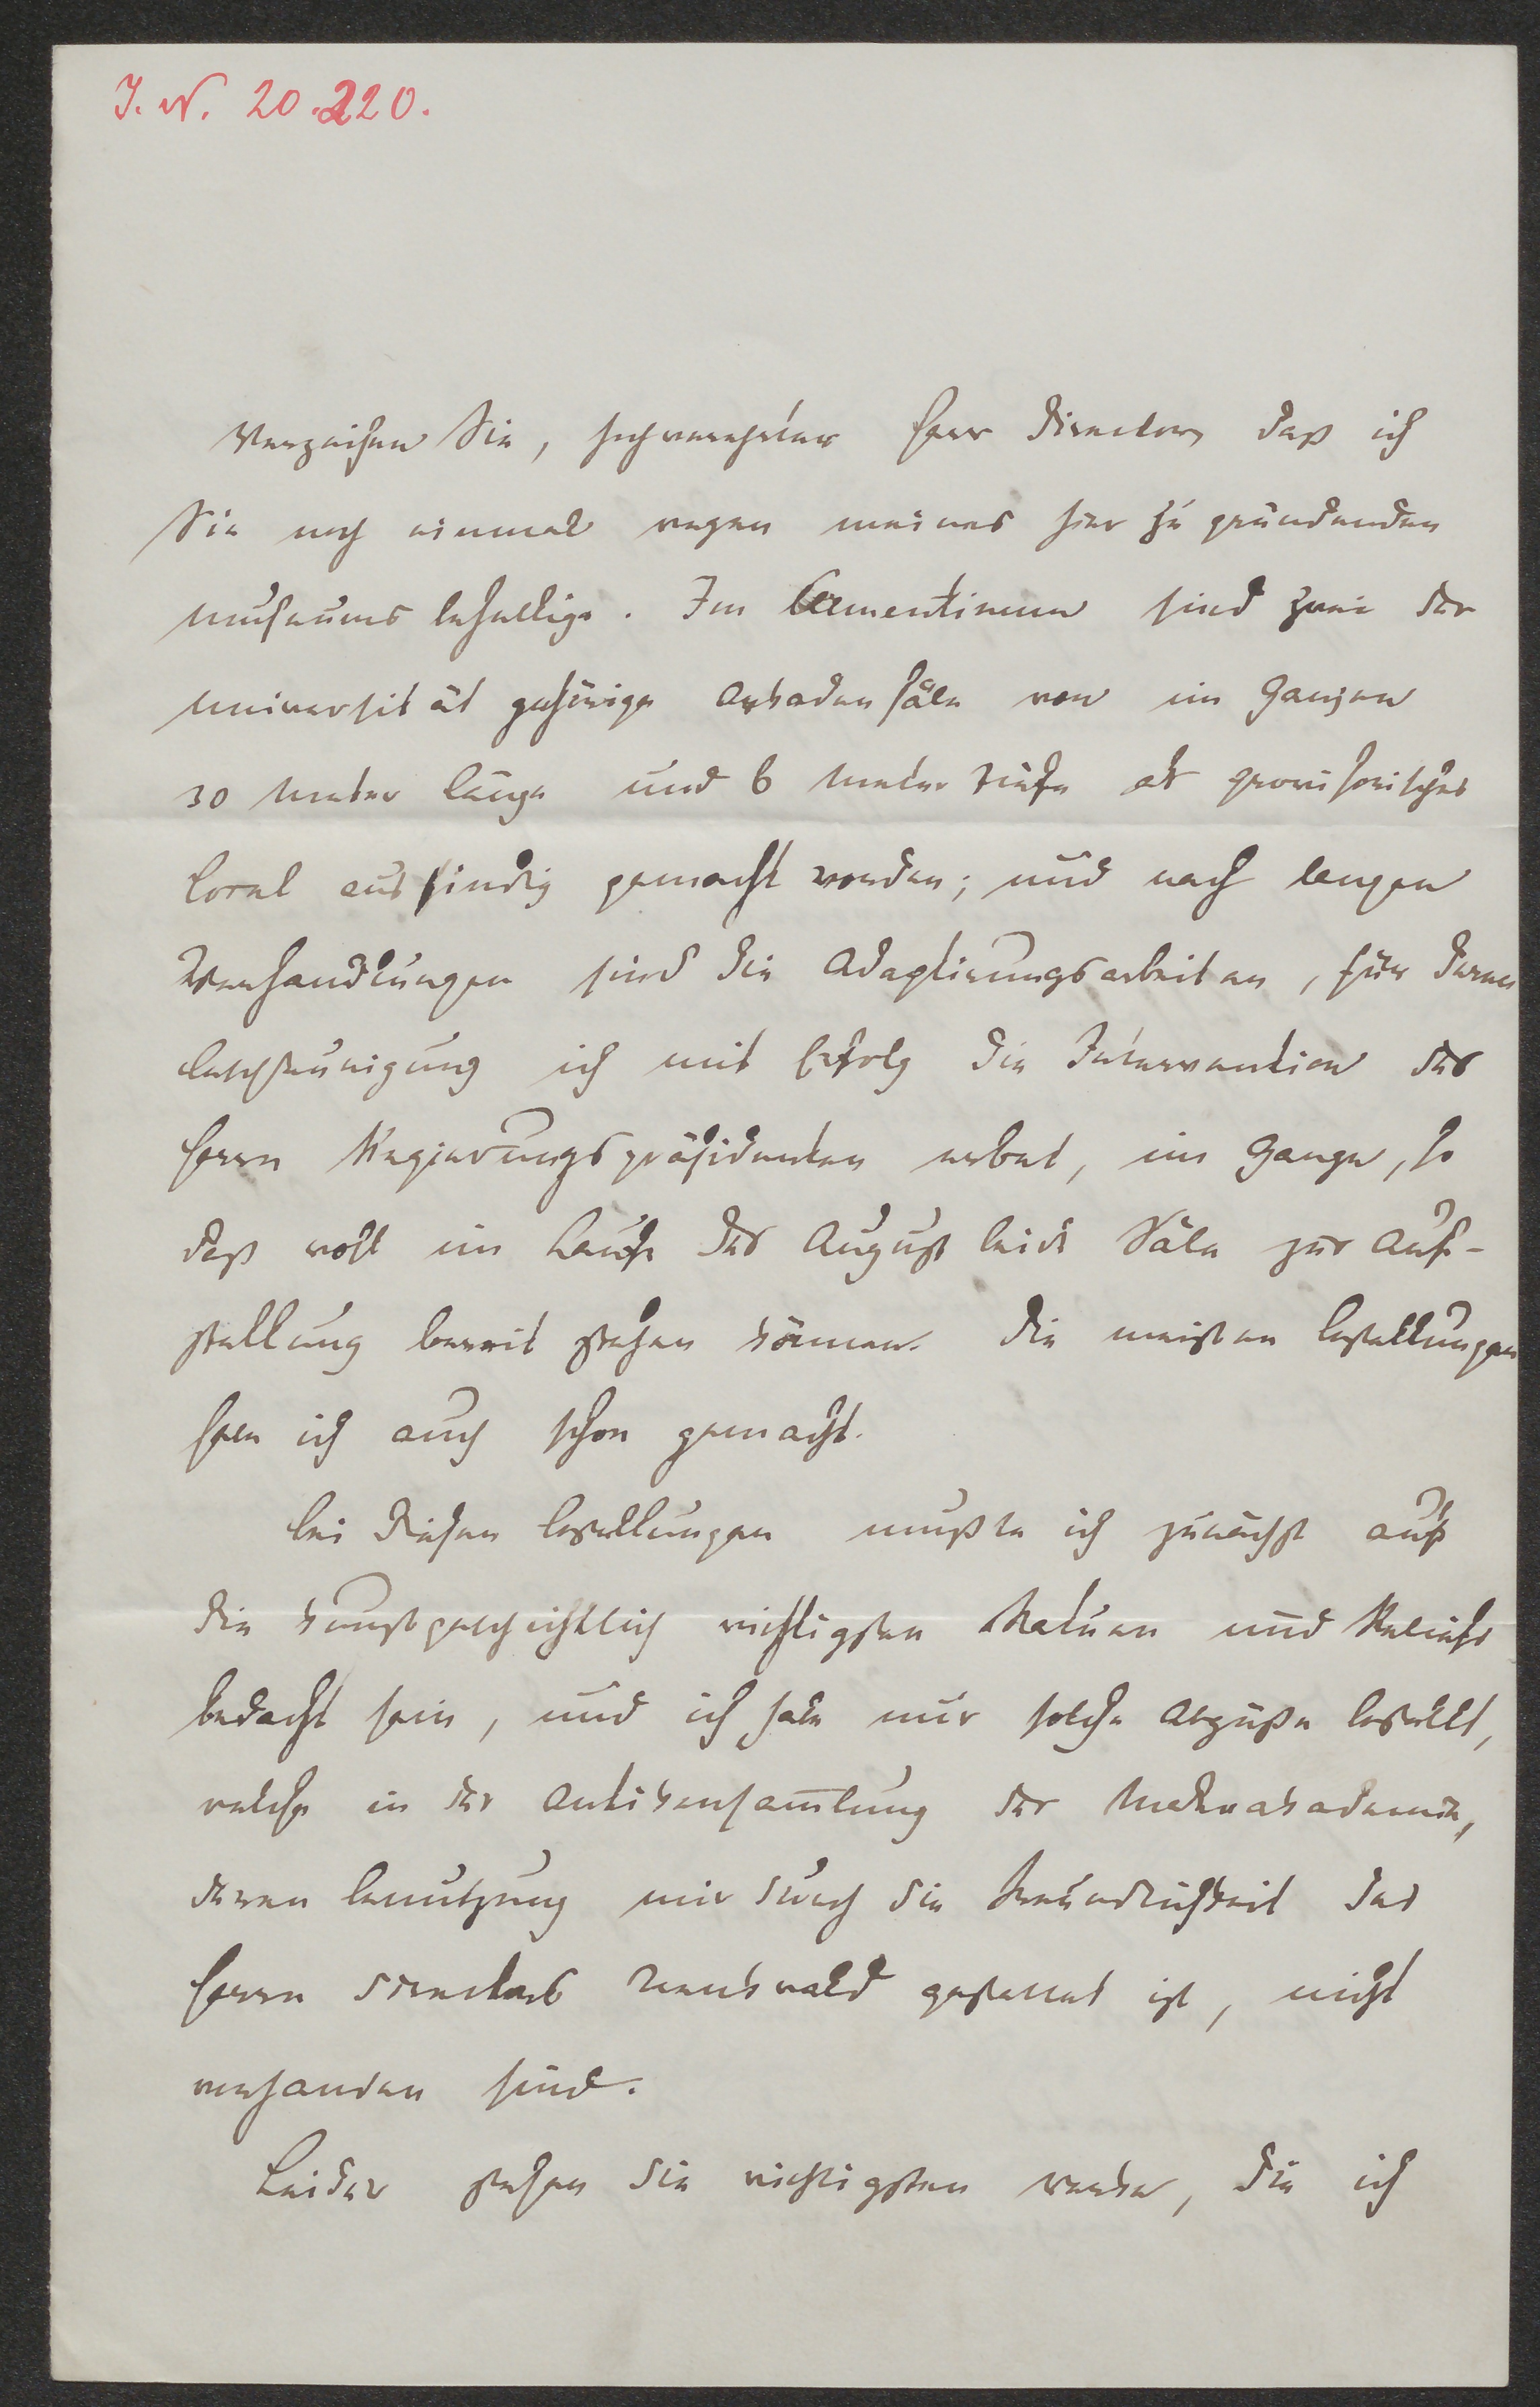 J. N. 20.220.
Verzeihen Sie, hochverehrter Herr Director, daß ich
Sie noch einmal wegen meines hier zu gründenden
Museums behellige. Im Clementinum sind zwei der
Universität gehörige Arkadensäle von im Ganzen
30 Meter Länge und 6 Meter Tiefe als provisorisches
Local ausfindig gemacht worden; und nach langen
Verhandlungen sind die Adaptirungsarbeiten, für deren
Beschleunigung ich mit Erfolg die Intervention des
Herrn Regierungspräsidenten erbat, im Gange, so
daß wohl im Laufe des August beide Säle zur Auf-
stellung bereit stehen können. Die meisten Bestellungen
habe ich auch schon gemacht.
Bei diesen Bestellungen mußte ich zunächst auf
die kunstgeschichtlich wichtigsten Statuen und Reliefs
bedacht sein, und ich habe nur solche Abgüße bestellt,
welche in der Antikensam̄lung der Malerakademie,
deren Benutzung mir durch die Freundlichkeit des
Herrn Directors Trenkwald gestattet ist, nicht
vorhanden sind.
Leider stehen die wichtigsten Werke, die ich